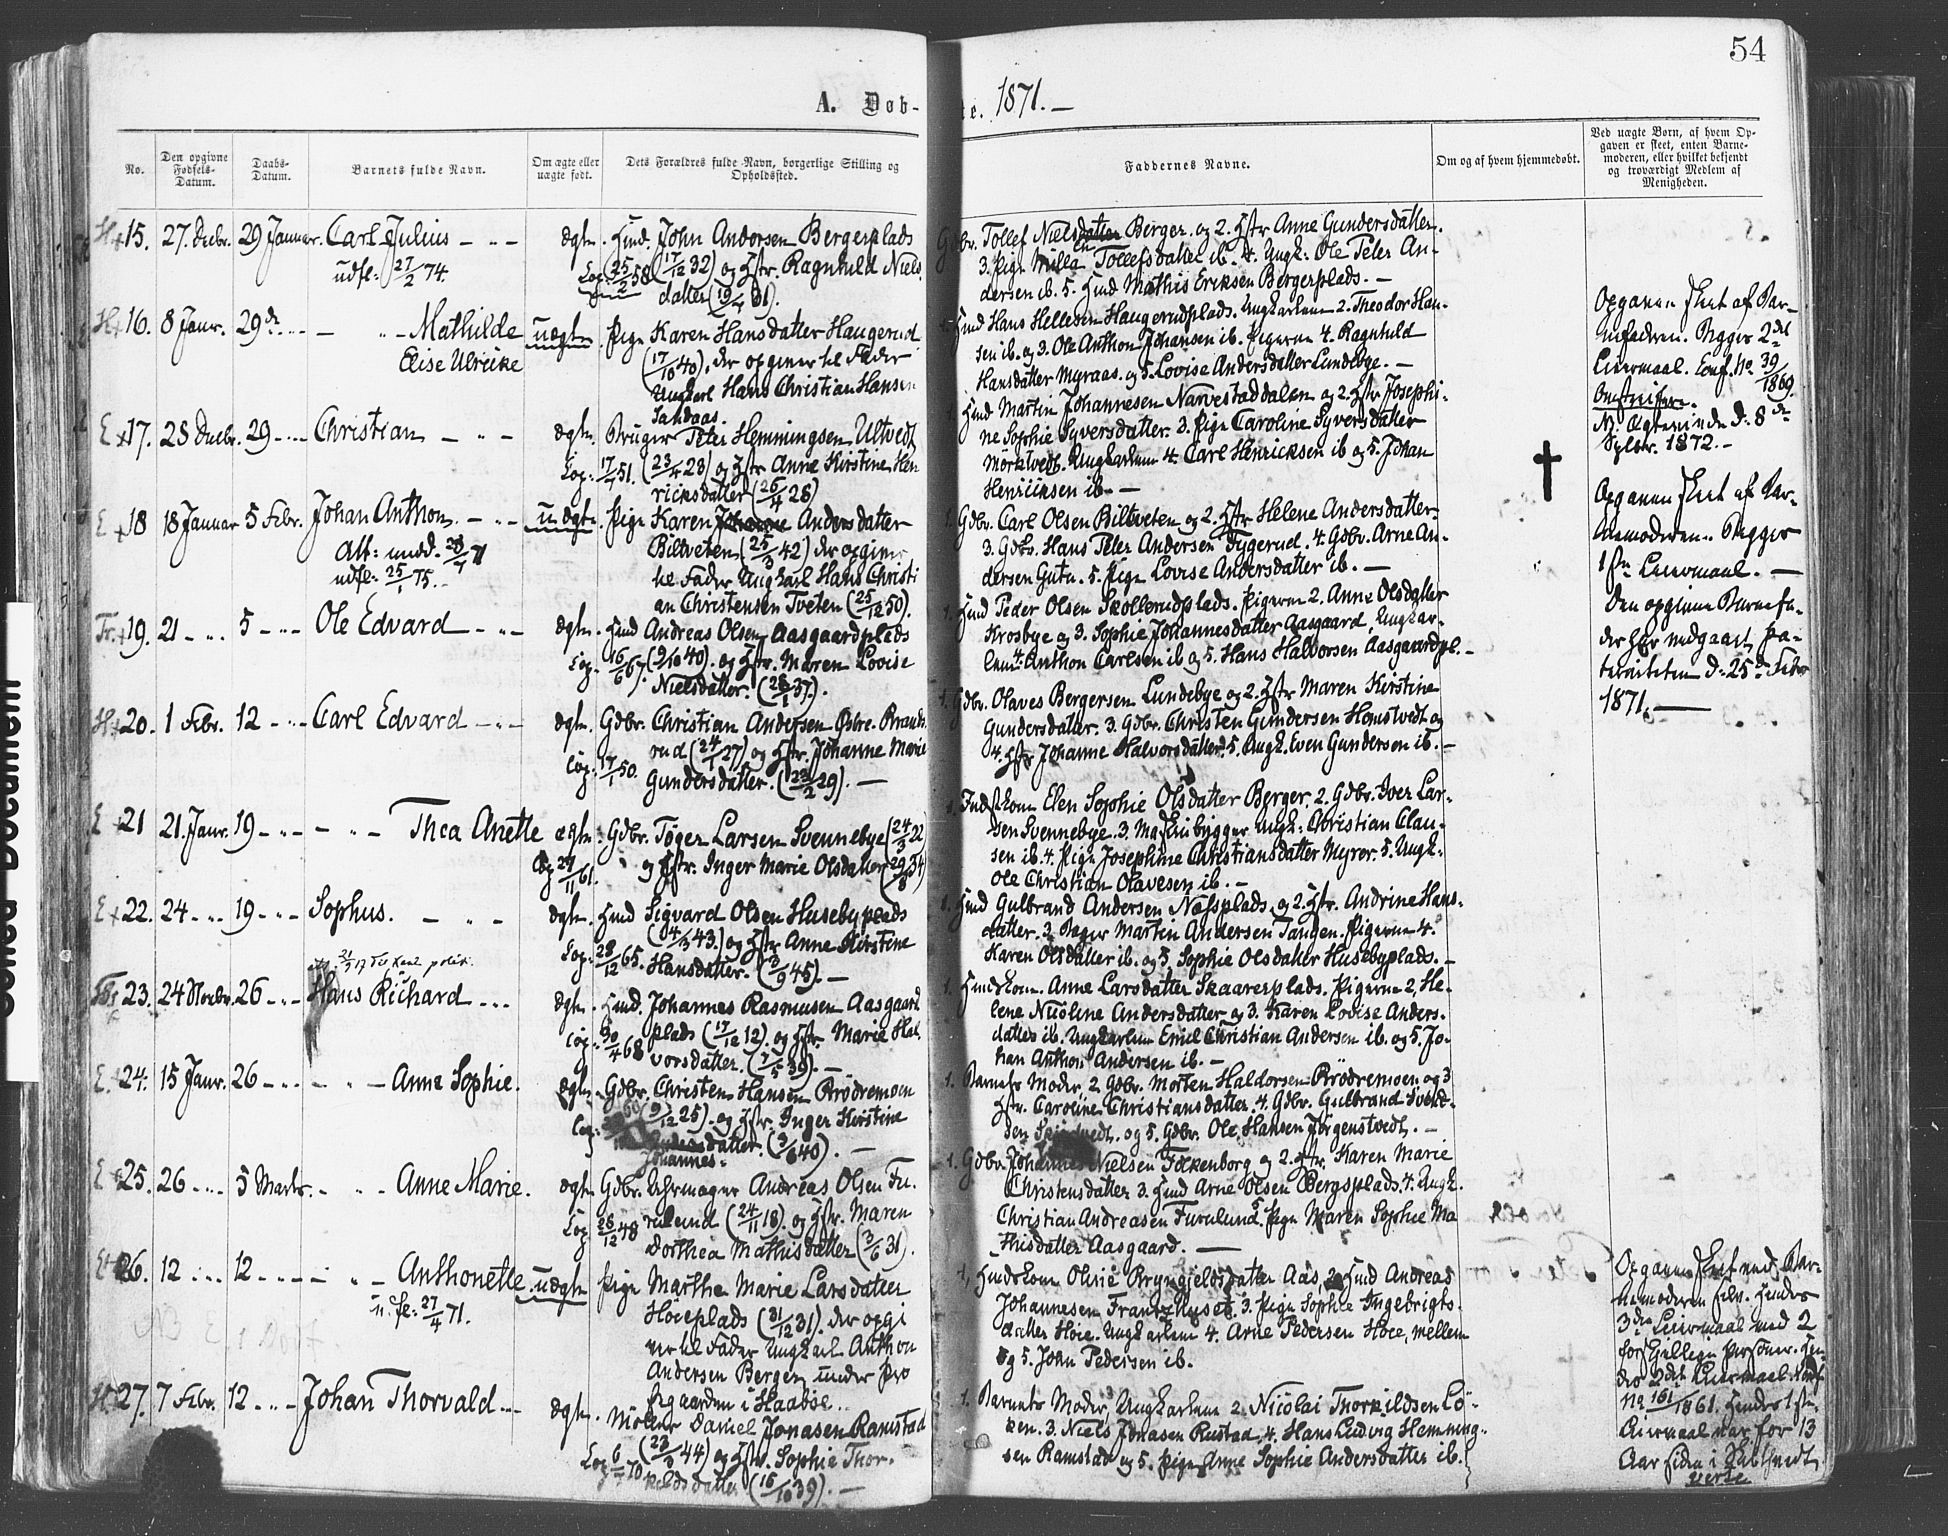 54
A. Døb-
te. 1871.—
No.
Den opgivne Fødsels-Datum.
Daabs-Datum.
Barnets fulde Navn.
Om ægte eller uægte født.
Dets Forældres fulde Navn, borgerlige Stilling og Opholdssted.
Faddernes Navne.
Om og af hvem hjemmedøbt.
Ved uægte Børn, af hvem Op-
gaven er skeet, enten Barne-
moderen, eller hvilket bekjendt
og troværdigt Medlem af
Menigheden.
15. 27. Decbr. 29 Januar. Carl Julius ægte. Hmd. John Andersen Bergerplads
udfl: 27/2 74. Cop: 25/2 58 (17/12 32) og Hstr. Ragnhild Niels
datter (19/4 31).
Gdbr. Tollef Nielsen Berger. og 2. Hstr Anne Gundersdatter.
3. Pige Milla Tollefsdatter ib. 4. Ungk: Ole Peter An-
dersen ib. 5. Hmd Mathis Eriksen Bergerplads.—
16. 8 Janr. 29de Mathilde uægte. Pige Karen Hansdatter Haugerud
Elise Ulrikke (17/10 40), der opgiver til Fader
Ungkarl Hans Christian Hansen
Sandaas.
1. Hmd Hans Hellesen Haugerudplads. Ungkarlene 2. Theodor Han-
sen ib. og 3. Ole Anthon Johansen ib. Pigerne 4. Ragnhild
Hansdatter Myraas. og 5. Lovise Andersdatter Lundebye.—
Opgaven skeet af Bar-
nefaderen. Begges 2det
Leiermaal. Conf. No. 39/1869.
D. 8de
Sptbr. 1872.—
17. 28 Decbr. 29 Christian ægte. Bruger Peter Hemmingsen Ultvedt
Cop: 17/4 51. (23/4 23) og Hstr Anne Kirstine Hen
ricksdatter (26/4 28)
1. Hmd Martin Johannesen Narvestaddalen og 2. Hstr Josephi-
ne Sophie Syversdatter. 3. Pige Caroline Syversdatter
Mørktvedt. Ungkarlene 4. Carl Henricksen ib og 5. Johan
Henricksen ib.—
18 18 Januar 5 Febr. Johan Anthon. uægte. Pige Karen Andersdatter
Att: udfl: 25/1 75. Biltveten (25/3 42) der opgiver
til Fader Ungkarl Hans Christi
an Christensen Tveten (25/12 50).
1. Gdbr. Carl Olsen Biltveten og 2. Hstr Helene Andersdatter.
3. Gdbr. Hans Peter Andersen Fygerud. 4. Gdbr. Arne An-
dersen Gutu. 5. Pige Lovise Andersdatter ib.—
Opgaven skeet af Bar-
nemoderen. Begges
1ste Leiermaal.—
Den opgivne Barnefa-
der har vedgaaet Pa-
terniteten d: 25de Febr
1871.
19. 21 5 Ole Edvard ægte. Hmd Andreas Olsen Aasgaardplads
Cop: 16/6 67. (9/10 40). og Hstr. Maren Lovise
Nielsdatter. (28/1 37).
1. Hmd Peder Olsen Skollerudplads. Pigerne 2. Anne Olsdatter
Krosbye og 3. Sophie Johannesdatter Aasgaard, Ungkar-
lene 4. Anthon Carlsen ib og 5. Hans Halvorsen Aasgaardpl.—
20. 1 Febr. 12 Carl Edvard ægte. Gdbr. Christian Andersen Østre-Brande
Cop: 17/1 50. rud (24/1 27) og Hstr. Johanne Marie
Gundersdatter. (22/2 29).—
1. Gdbr. Olaves Bergersen Lundebye og 2. Hstr Maren Kirstine
Gundersdatter. 3. Gdbr. Christen Gundersen Homstvedt og
4. Hstr Johanne Halvorsdatter. 5. Ungk. Even Gundersen ib.—
21 21. Janr. 19 Thea Anette ægte. Gdbr. Tøger Larsen Svennebye (24/3 22)
Cop 27/11 61. og Hstr: Inger Marie Olsdatter (29/8 34)
Elen Sophie Olsdatter Berger. 2. Gdbr. Iver Lar-
sen Svennebye. 3. Maskinbygger Ungk: Christian Clau-
sen ib. 4. Pige Josephine Christiansdatter Myrer. 5. Ungk.
Ole Christian Olavesen ib.—
22. 24 19 Sophus. ægte. Hmd Sigvard Olsen Husebyplads
Cop: 28/12 65. (4/3 43.) og Hstr Anne Kirstine
Hansdatter. (3/9 45).—
1. Hmd Gulbrand Andersen Næssplads. og 2. Hstr. Andrine Hans-
datter. 3. Bager Martin Andersen Tangen. Pigerne 4.
Karen Olsdatter ib. og 5. Sophie Olsdatter Husebyplads.—
23. 24 Novbr. 26 Hans Richard ægte. Hmd. Johannes Rasmusen Aasgaard
Cop: 30/4 68 plads (17/12 12). og Hstr Marie Hal
vorsdatter. (7/5 39).—
1. Hmdskone. Anne Larsdatter Skaarerplads. Pigerne 2. He-
lene Nicoline Andersdatter og 3. Karen Lovise Anders-
datter ib. Ungkarlene Emil Christian Andersen ib. og 5. Jo-
han Anthon Andersen ib.—
24. 15 Janr. 26 Anne Sophie. ægte. Gdbr. Christen Hansen Brødremoen
Cop: (9/12 25). og Hstr. Inger Kirstine
datter. (9/6 40).—
Johannes-
1. Barnets Moder. 2. Gdbr. Morten Haldorsen Brødremoen og 3
Hstr. Caroline Christiansdatter. 4. Gdbr. Gulbrand Svend-
sen og 5. Gdbr. Ole Hansen Jørgenstvedt.—
25. 26 5 Marts. Anne Marie. ægte Gdbr. Uhrmager Andreas Olsen Fu-
Cop 28/12 48 rulund (24/11 18) og Hstr. Maren
Dorthea Mathisdatter (3/6 31).
1. Gdbr. Johannes Nielsen Folkenborg og 2. Hstr. Karen Marie
Christensdatter 3. Hmd Arne Olsen Bergsplads. 4. Ungk.
Christian Andreasen Furulund. 5. Pige Maren Sophie Ma
thisdatter Aasgaard.—
26. 12 12 Anthonette uægte Pige Marthe Marie Larsdatter
udfl: 27/4 71. Høieplads (31/12 31). der opgi
ver til Fader Ungkarl Anthon
Andersen Bergen under Præ
stegaarden i Haabøl.
1. Hmdskone Olivie Bryngjeldsdatter Aas, 2. Hmd Andreas
Johannesen Frantzhuset 3. Pige Sophie Ingebrigts-
datter Høie. Ungkarlene 4. Arne Pedersen Høie, mellem
og 5. John Pedersen ib.
Opgaven skeet ved Bar-
nemoderen selv. Hendes
3die Leiermaal med 2
forskjellige Personer. Hen-
des 2det Leiermaal Conf
No 161/1861. Hendes 1ste
Leiermaal var for 13
Aar siden i
verte
27. 7 Febr. 12 Johan Thorvald ægte. Møller Daniel Jonasen Ramstad
Cop 6/7 70 (23/3 44) og Hstr. Sophie Thor-
kildsdatter (16/10 39).—
1. Barnets Moder, Ungkarlene 2. Nicolai Thorkildsen Lø-
ken. 3. Niels Jonasen Rustad. 4. Hans Ludvig Hemming-
sen Ramstad og 5. Pige Anne Sophie Andersdatter ib.